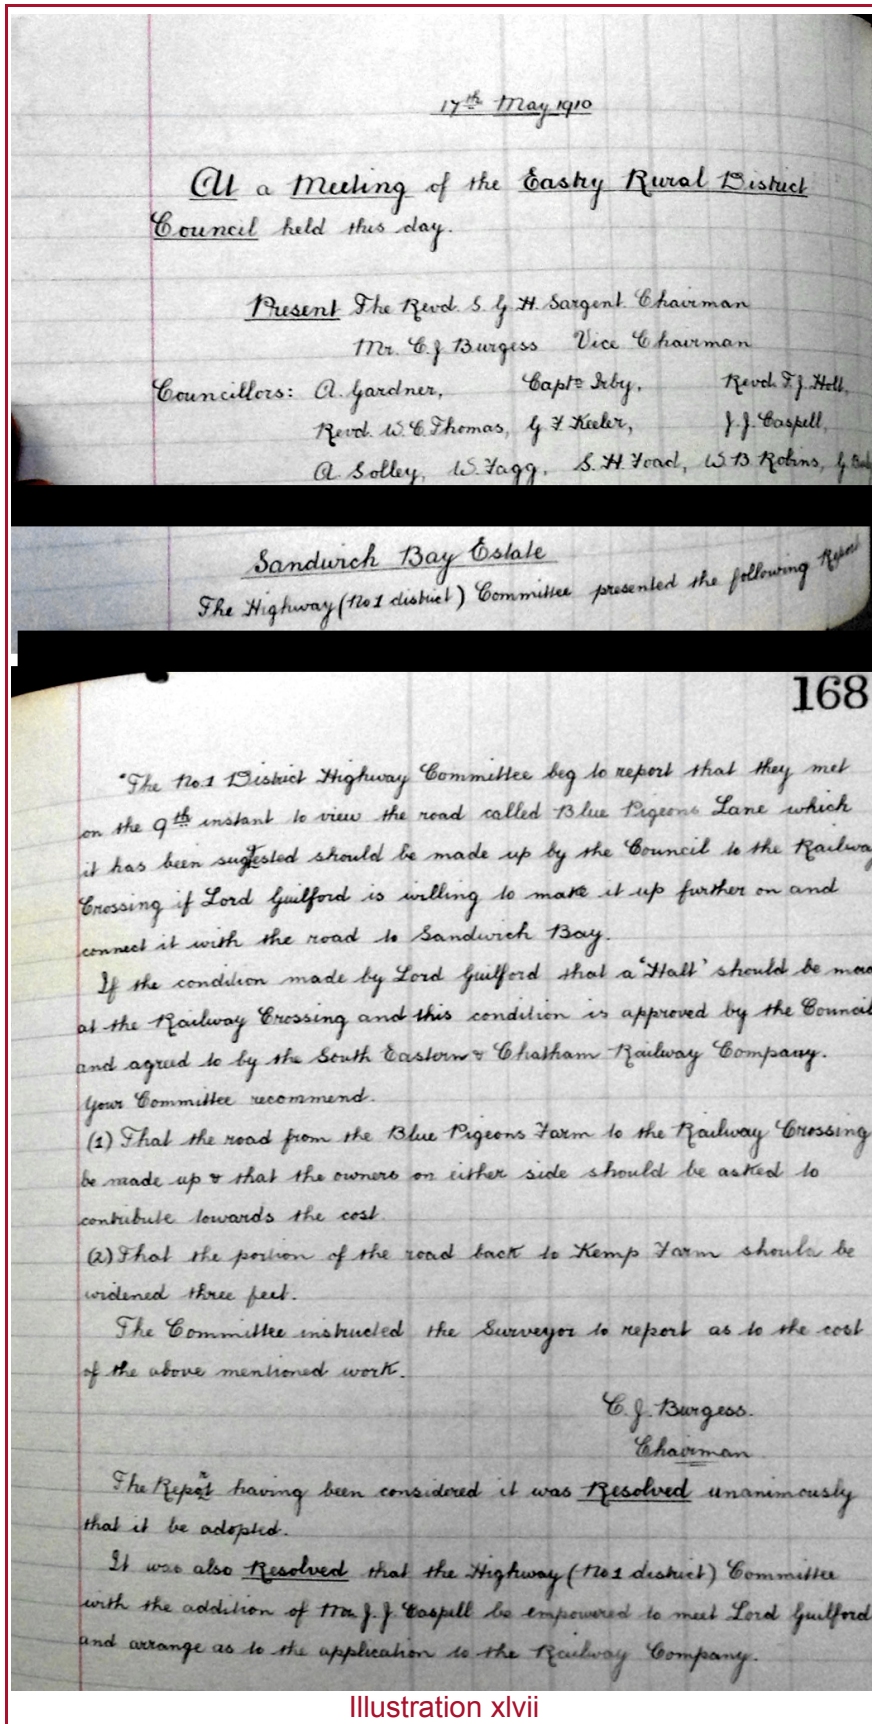 17th May 1910
At a Meeting of the Eastry Rural District
Council held this day.
Present The Revd. S. G H. Sargent Chairman
Mr. C. J Burgess Vice Chairman
Councillors: A. Gardner, Captn Irby, Revd. F. J. Holt,
Revd. W. C. Thomas, G F Keeler, J. J. Caspell,
A Solley, W. Fagg, S. H. Foad, W B Robins, G
Sandwich Bay Estate
The Highway (No 1 district) Committee presented the following Report
168
"The No.1 District Highway Committee beg to report that they met
on the 9th instant to view the road called Blue Pigeons Lane which
it has been suggested should be made up by the Council to the Railway
Crossing if Lord Guilford is willing to make it up further on and
connect it with the road to Sandwich Bay.
If the condition made by Lord Guilford that a "Halt" should be made
at the Railway Crossing and this condition is approved by the Council
and agreed to by the South Eastern & Chatham Railway Company.
Your Committee recommend.
(1) That the road from the Blue Pigeons Farm to the Railway Crossing
be made up & that the owners on either side should be asked to
contribute towards the cost.
(2) That the portion of the road back to Kemp Farm should be
widened three feet.
The Committee instructed the Surveyor to report as to the cost
of the above mentioned work.
C. J. Burgess.
Chairman
The Report having been considered it was Resolved unanimously
that it be adopted.
It was also Resolved that the Highway (No 1 district) Committee
with the addition of Mr. J. J Caspell be empowered to meet Lord Guilford
and arrange as to the application to the Railway Company.
Illustration xlvii